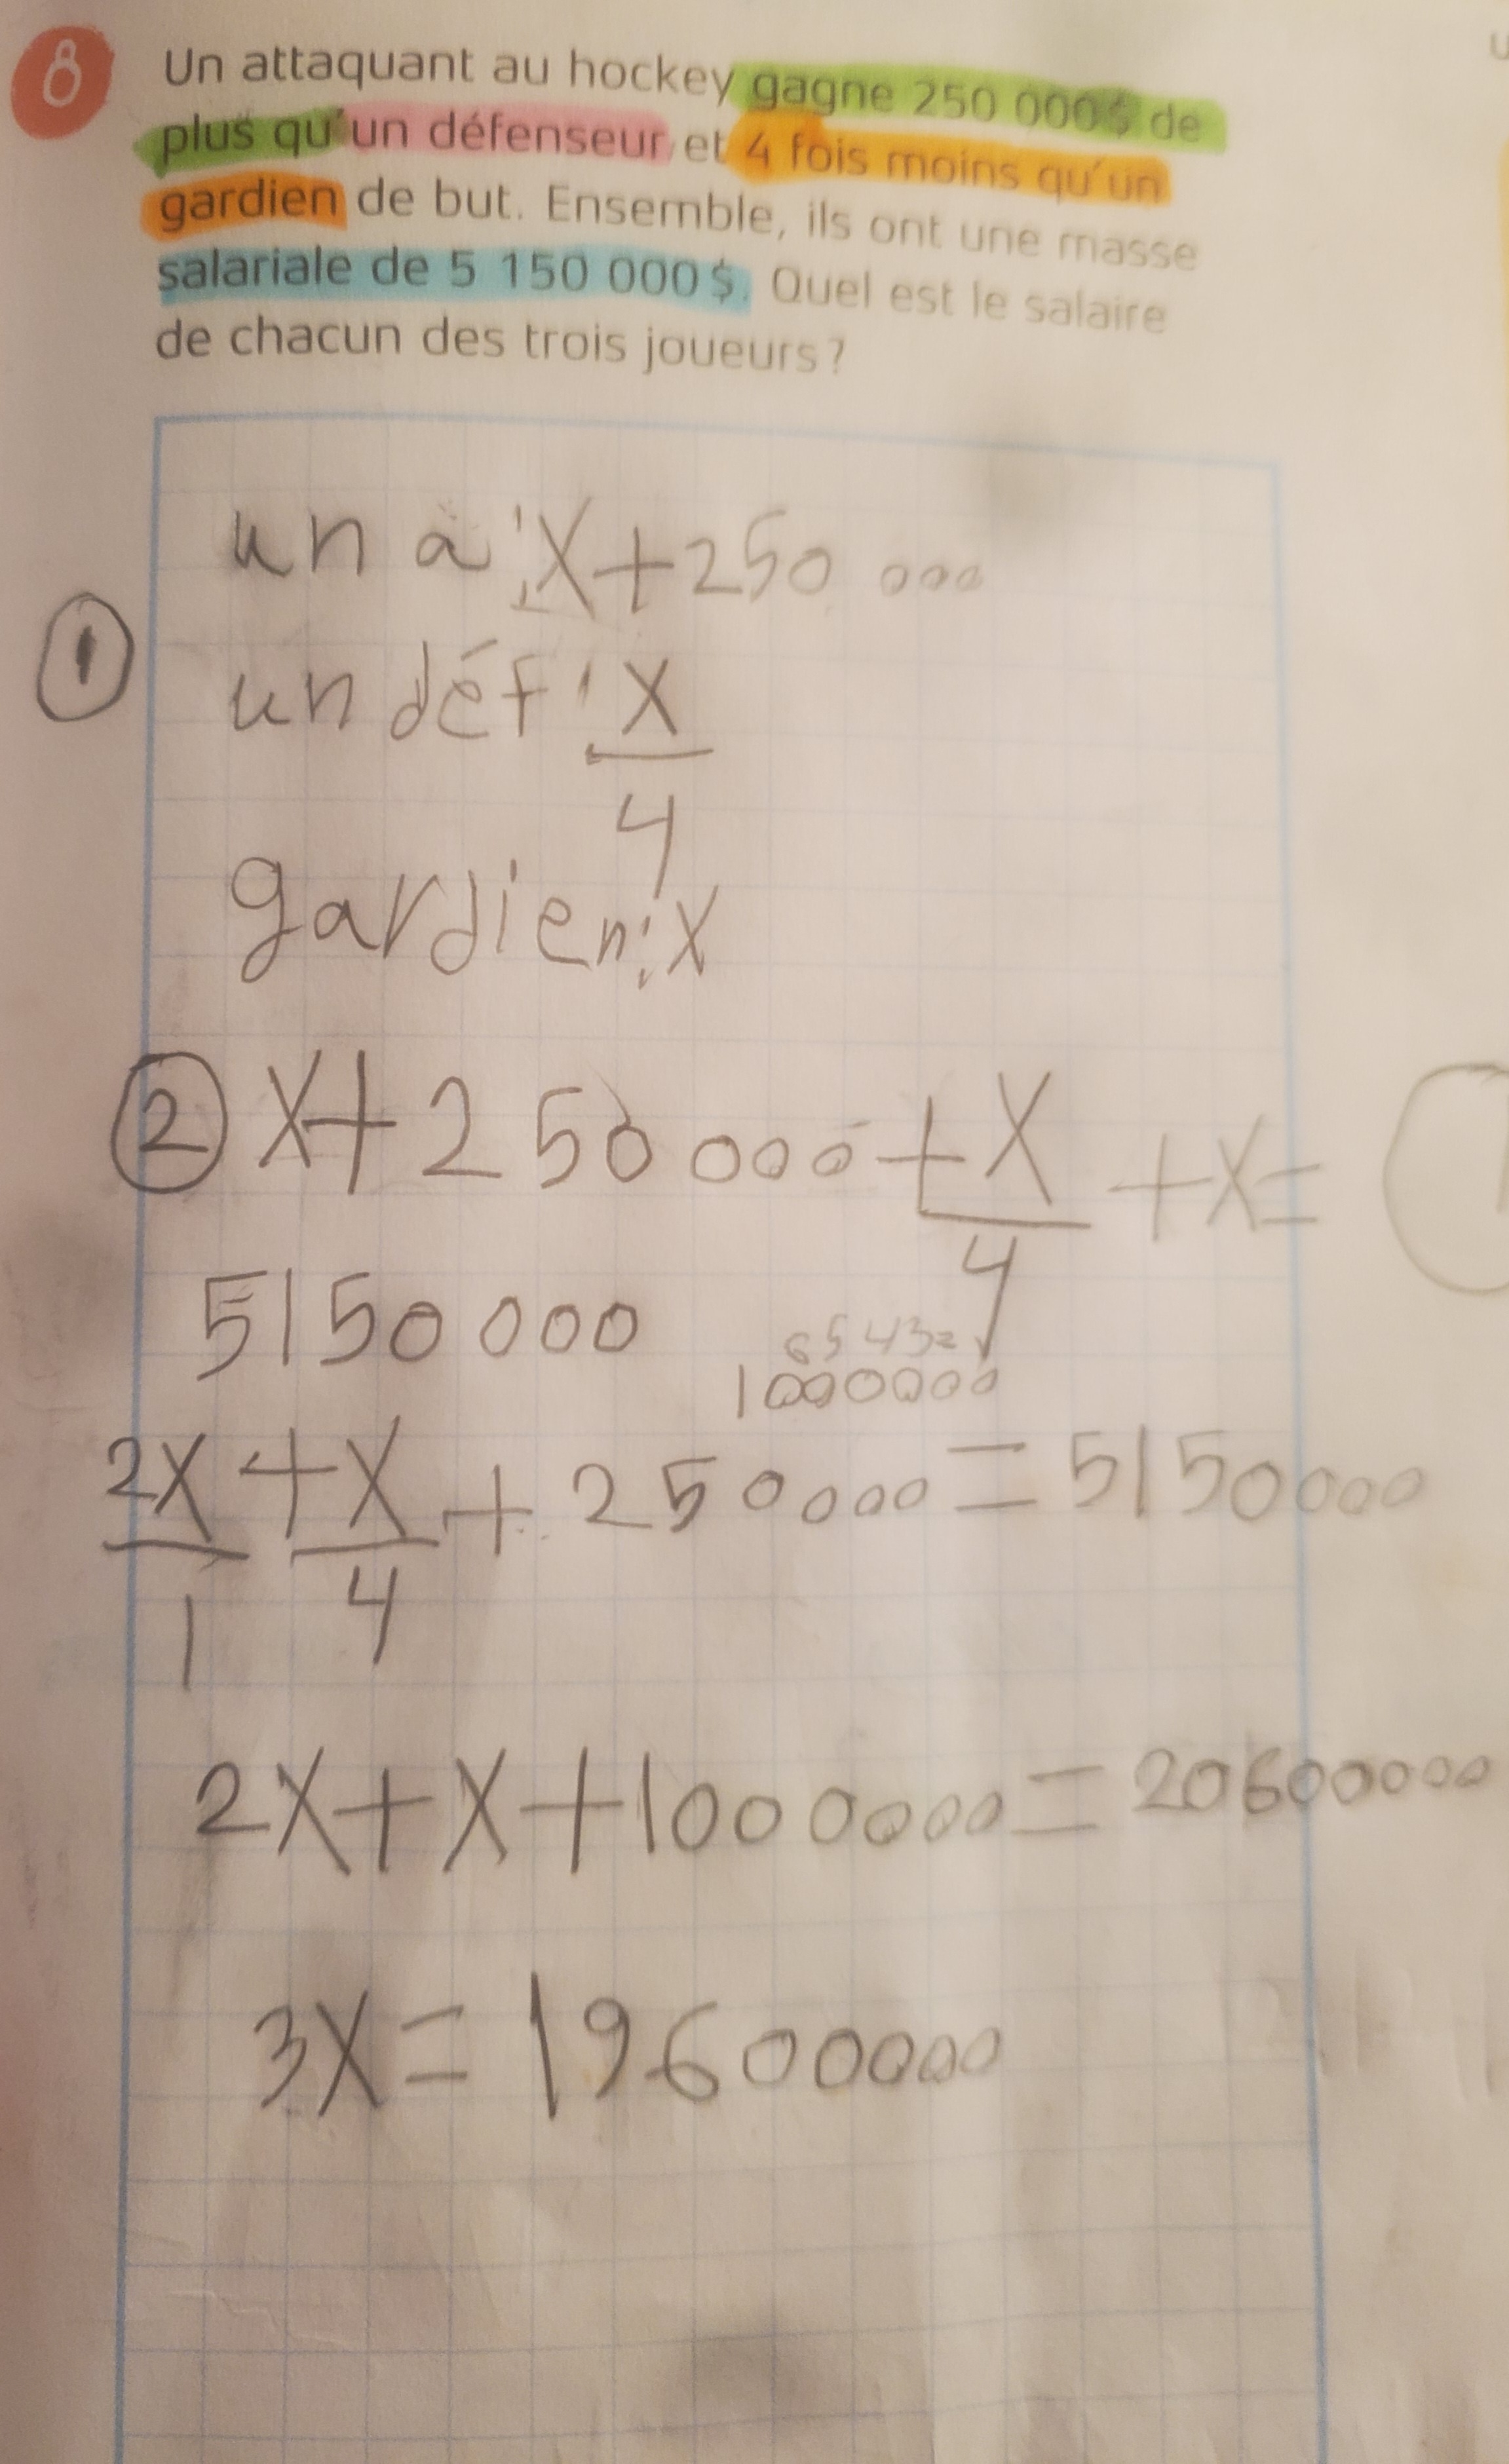 8
Un attaquant au hockey gagne 250 000 $ de
plus qu'un défenseur et 4 fois moins qu'un
gardien de but. Ensemble, ils ont une masse
salariale de 5 150 000 $. Quel est le salaire
de chacun des trois joueurs ?
un a : X + 250 000
①
un déf : X/4
gardien : X
② X + 250 000 + X/4 + X =
5150 000
6 5 4 3 2 1
1000000
2X/1 + X/4 + 250 000 = 5150000
2X + X + 1000 000 = 20600000
3X = 19600000